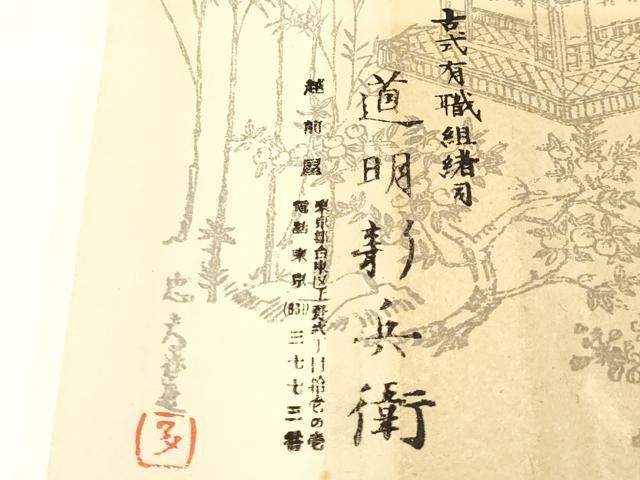 古式有職組緒司
道明新兵衛
越前屋
東京都台東区上野弐丁目拾壱の壱
電話東京(831)三七七三番